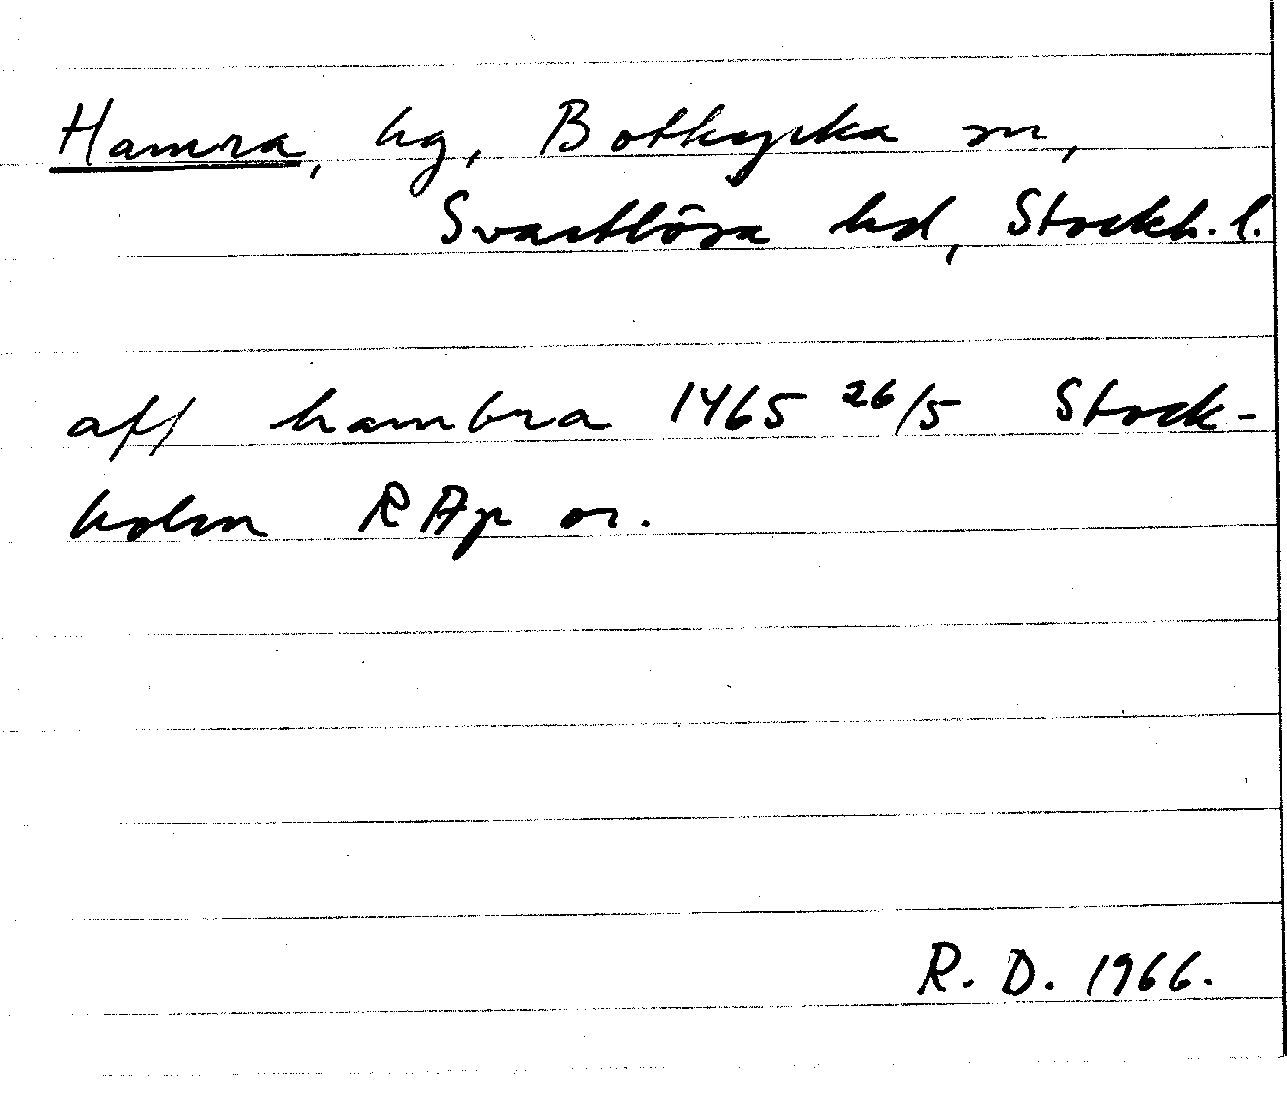 Hamra, hg, Botkyrka sn,
Svartlösa hd, Stockh. l.
aff hambra 1465 26/5 Stock-
holm RAp or.
R. D. 1966.